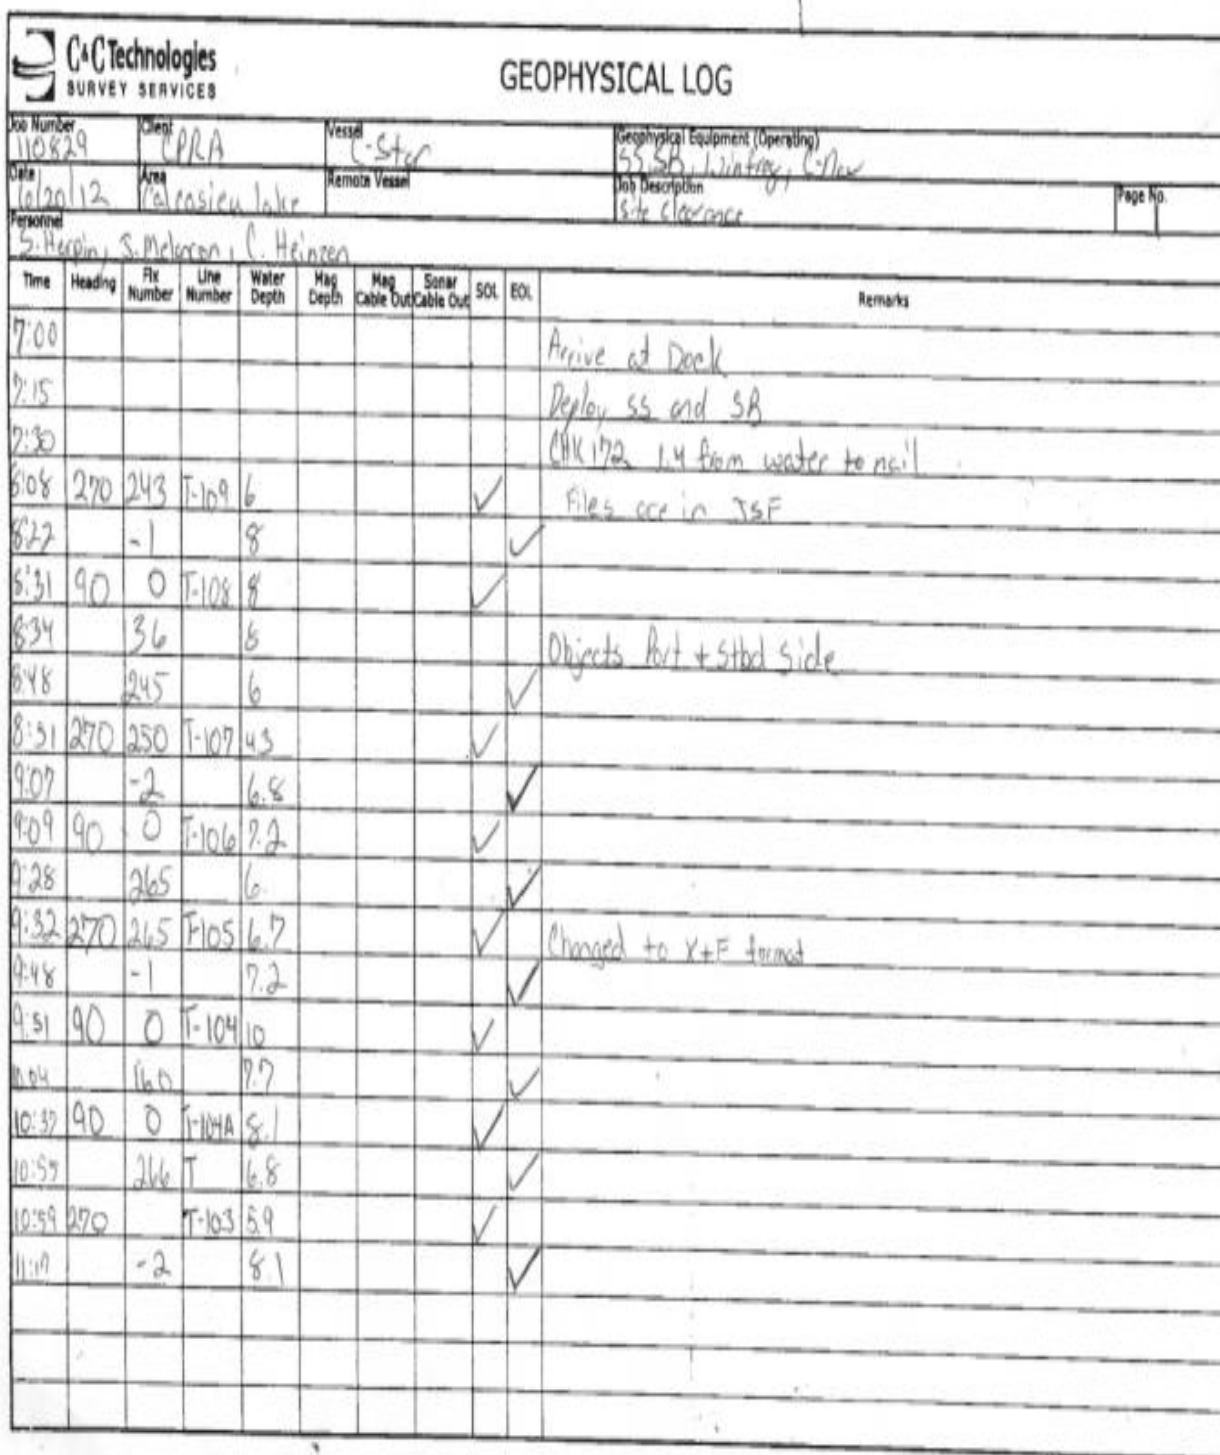 C&C Technologies
SURVEY SERVICES
GEOPHYSICAL LOG
Job Number Client Vessel Geophysical Equipment (Operating)
110829 CPRA C-Star SS, SB, Winfrog, C-Nav
Date Area Remote Vessel Job Description Page No.
6/20/12 Calcasieu lake Site Clearance
Personnel
S. Herpin, S. Melancon, C. Heinzen
Time Heading Fix Number Line Number Water Depth Mag Depth Mag Cable Out Sonar Cable Out SOL EOL Remarks
7:00 Arrive at Dock
7:15 Deploy SS and SB
7:30 CHK 172 1.4 from water to nail
8:08 270 243 T-109 6 ✓ Files are in JSF
8:27 -1 8 ✓
8:31 90 0 T-108 8 ✓
8:34 36 8 Objects Port + Stbd Side
8:48 245 6 ✓
8:51 270 250 T-107 ✓
9:07 -2 6.8 ✓
9:09 90 0 T-106 7.2 ✓
9:28 265 6 ✓
9:32 270 265 T-105 6.7 ✓ Changed to X+F format
9:48 -1 7.2 ✓
9:51 90 0 T-104 10 ✓
10:04 160 7.7 ✓
10:37 90 0 T-104A 8.1 ✓
10:55 266 T 6.8 ✓
10:59 270 T-103 5.9 ✓
11:17 -2 8.1 ✓